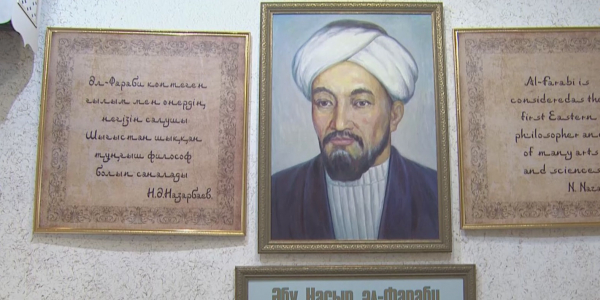 Әл-Фараби көптеген
ғылым мен өнердің
негізін салушы
Шығыстан шыққан
тұңғыш философ
болып саналады
Н.Ә.Назарбаев.
Al-Farabi is
considered as the
first Eastern
philosopher and
of many arts
and sciences
N.
Әбу Насыр әл-Фараби